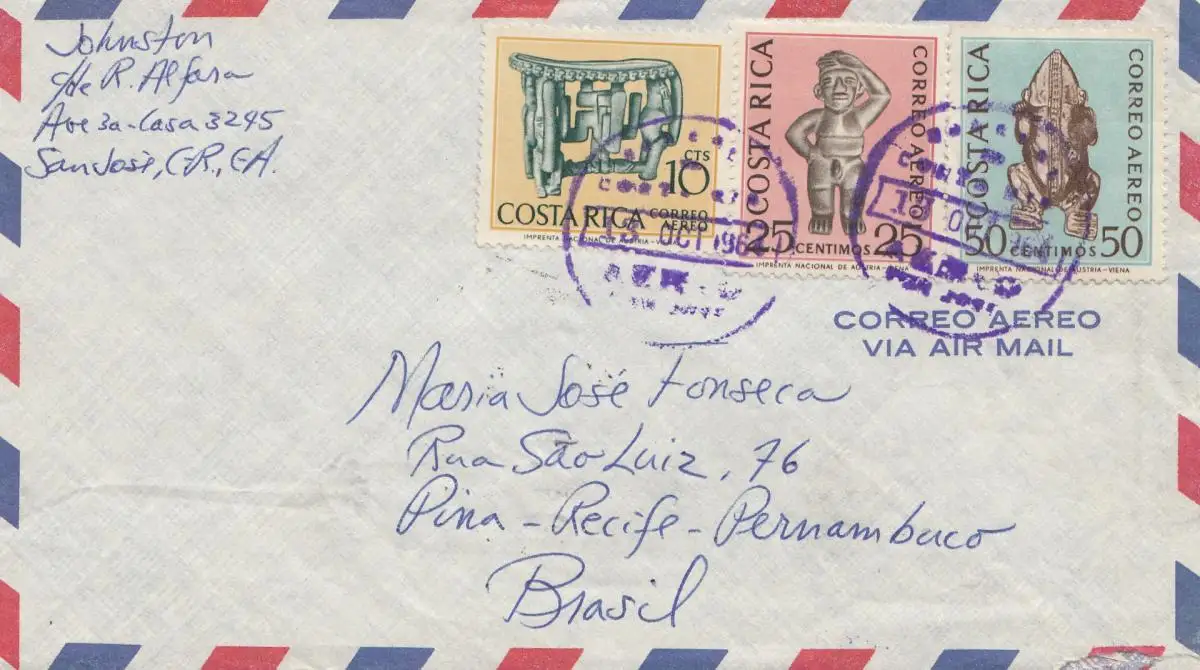 Johnston
de R. Alfara
Ave 3a-Casa 3245
San José, C.R., C.A.
10 CTS
COSTA RICA CORREO AEREO
IMPRENTA NACIONAL DE AUSTRIA-VIENA
COSTA RICA
CORREO AEREO
25 CENTIMOS 25
IMPRENTA NACIONAL DE AUSTRIA-VIENA
COSTA RICA
CORREO AEREO
50 CENTIMOS 50
IMPRENTA NACIONAL DE AUSTRIA-VIENA
13 OCT 196
CORREO AEREO
VIA AIR MAIL
Maria José Fonseca
Rua São Luiz, 76
Pina - Recife - Pernambuco
Brasil